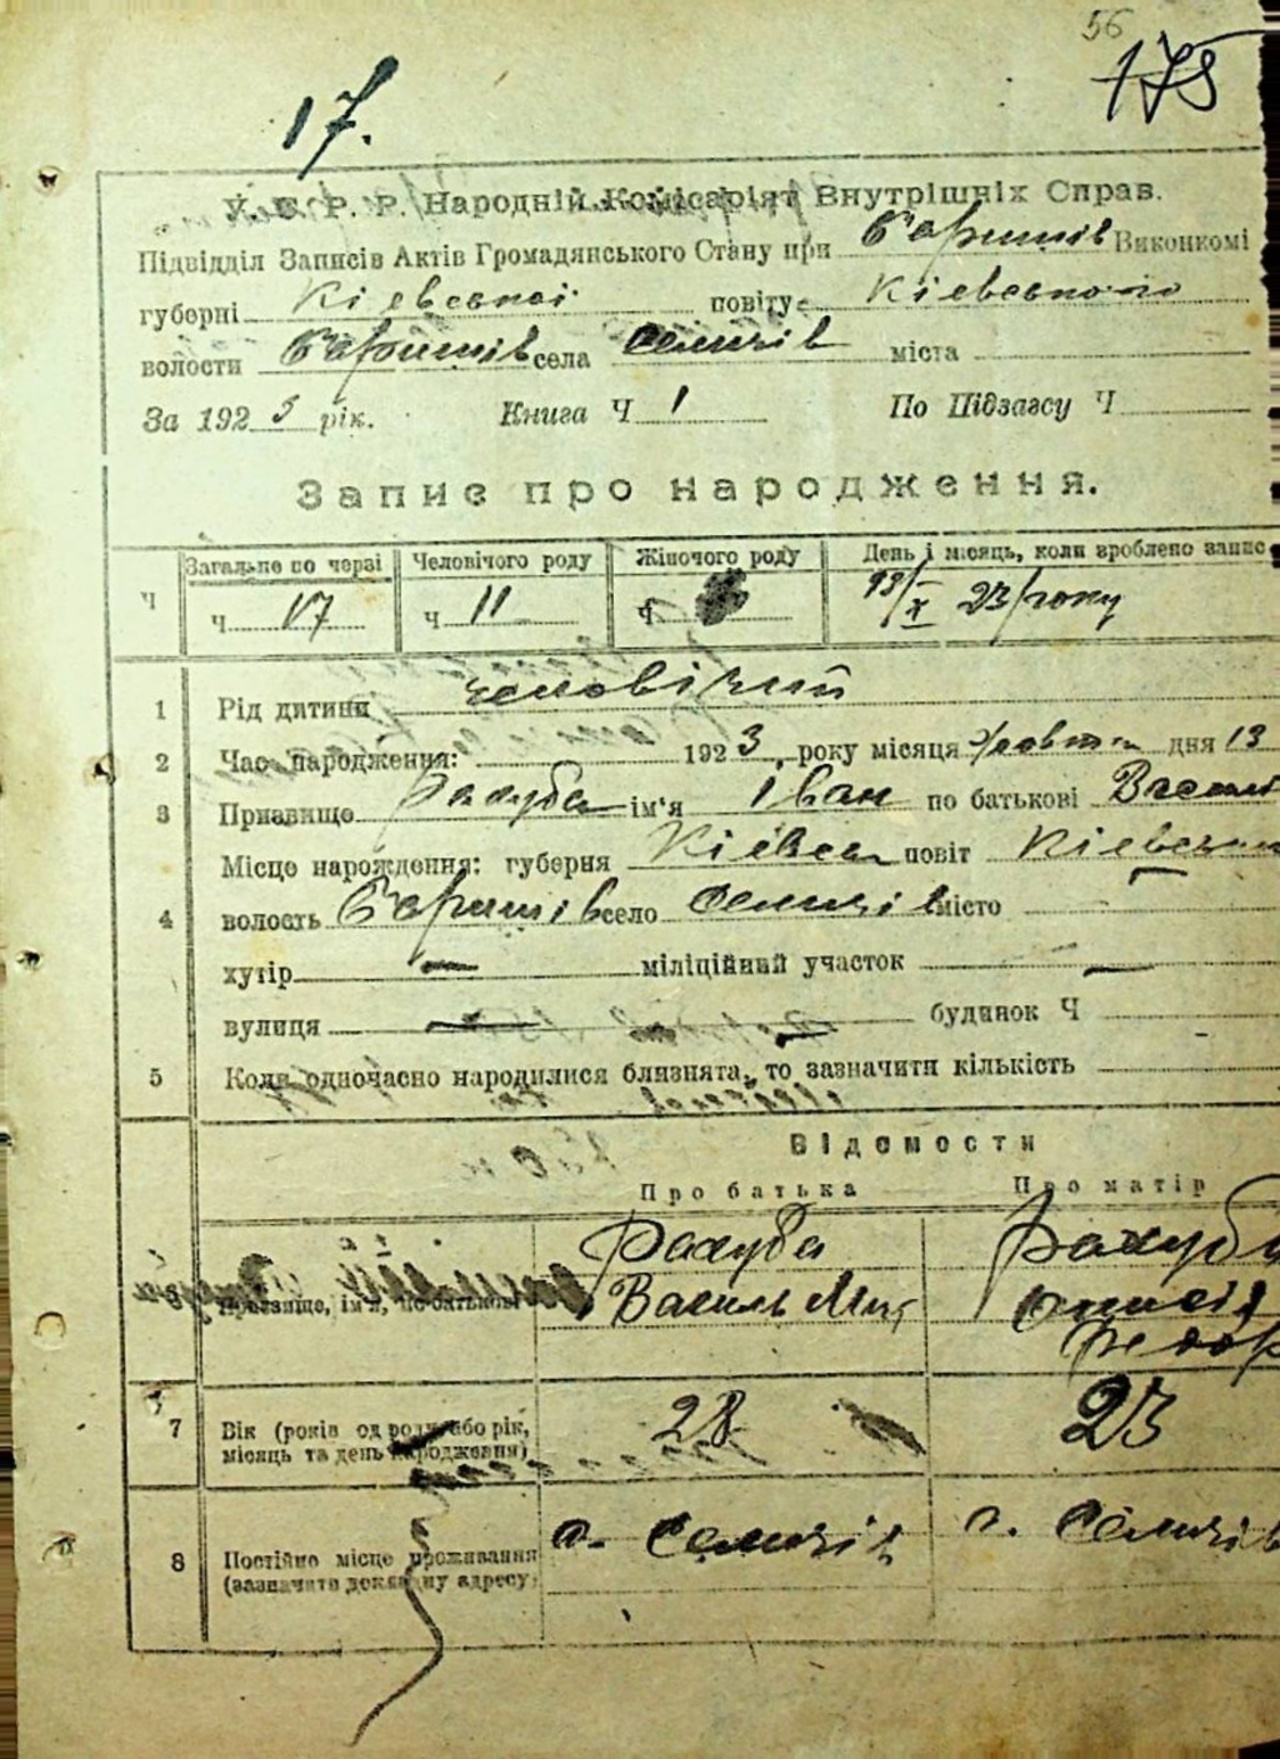 56
175
17.
У. С. Р. Р. Народній Комісаріят Внутрішніх Справ.
Підвідділ Записів Актів Громадянського Стану при Баришів Виконкомі
губерні Кіевської повіту Кіевського
волости Баришів села Селичів міста
За 1923 рік. Книга Ч 1 По Підзагсу Ч
Запис про народження.
Загальне по черзі Человічого роду Жіночого роду День і місяць, коли зроблено запис
Ч ч 17 ч 11 ч 23/року
1 Рід дитини человічий
2 Час народження: 1923 року місяця жовтня дня 13
3 Призвище Рахуба ім'я Іван по батькові
Місце нарождення: губерня Кіевск повіт
4 волость Баришів село Селичів місто
хутір — міліційний участок —
вулиця — будинок Ч
5 Коли одночасно народилися близнята, то зазначити кількість
Відомости
Про батька Про матір
Рахуба Рахуба
6 Призвище, ім'я, по батькові Василь
7 Вік (років од роду або рік, 28 23
місяць та день народження)
8 Постійне місце проживання с. Селичів с. Селичів
(зазначити докладну адресу)